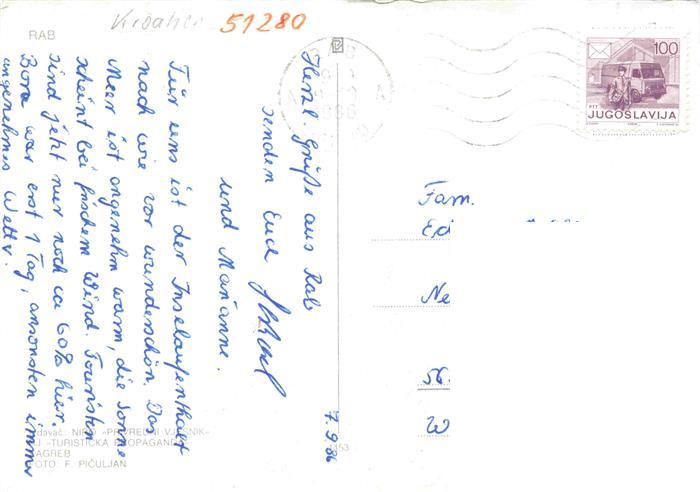 RAB
Kroatien
51280
Herzl. Grüße aus Rab
senden Euch
und Marianne.
Für uns ist der Inselaufenthalt
nach wie vor wunderschön. Das
Meer ist angenehm warm, die Sonne
scheint bei frischem Wind. Touristen
sind jetzt nur noch ca 60% hier.
Bora war erst 1 Tag, ansonsten immer
angenehmes Wetter.
7.9.86
100
PTT
JUGOSLAVIJA
Fam.
Ed
Ne
56
W
NIRO »PRIVREDNI VJESNIK«
»TURISTIČKA PROPAGANDA«
ZAGREB
FOTO: F. PIČULJAN